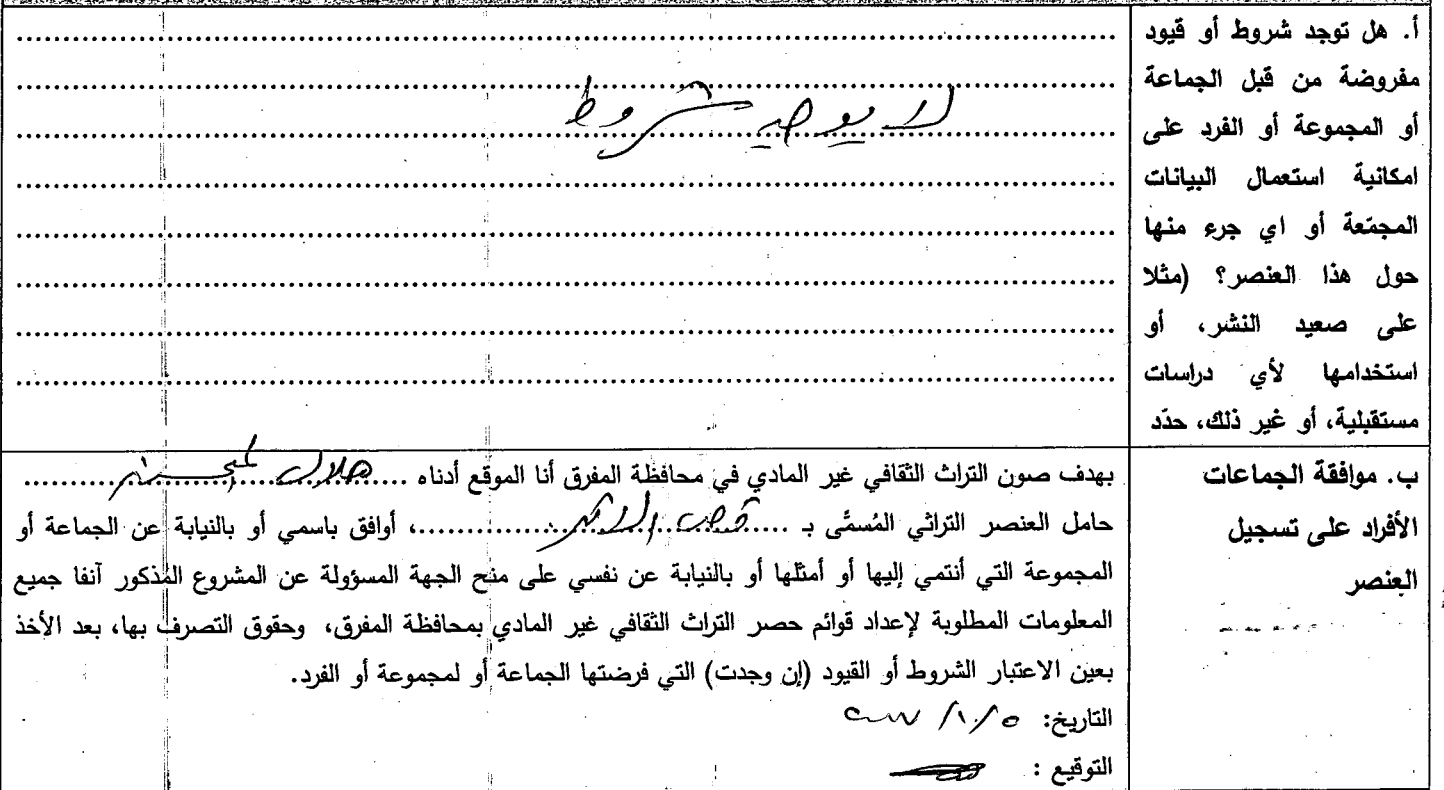 أ. هل توجد شروط أو قيود
مفروضة من قبل الجماعة
أو المجموعة أو الفرد على
امكانية استعمال البيانات
المجمّعة أو اي جرء منها
حول هذا العنصر؟ (مثلا
على صعيد النشر، أو
استخدامها لأي دراسات
مستقبلية، أو غير ذلك، حدّد
لا يوجد شروط
ب. موافقة الجماعات
الأفراد على تسجيل
العنصر
بهدف صون التراث الثقافي غير المادي في محافظة المفرق أنا الموقع أدناه ..... هلال
حامل العنصر التراثي المُسمَّى بـ ..... قصب .....، أوافق باسمي أو بالنيابة عن الجماعة أو
المجموعة التي أنتمي إليها أو أمثلها أو بالنيابة عن نفسي على منح الجهة المسؤولة عن المشروع المذكور آنفا جميع
المعلومات المطلوبة لإعداد قوائم حصر التراث الثقافي غير المادي بمحافظة المفرق، وحقوق التصرف بها، بعد الأخذ
بعين الاعتبار الشروط أو القيود (إن وجدت) التي فرضتها الجماعة أو لمجموعة أو الفرد.
التاريخ:
التوقيع :